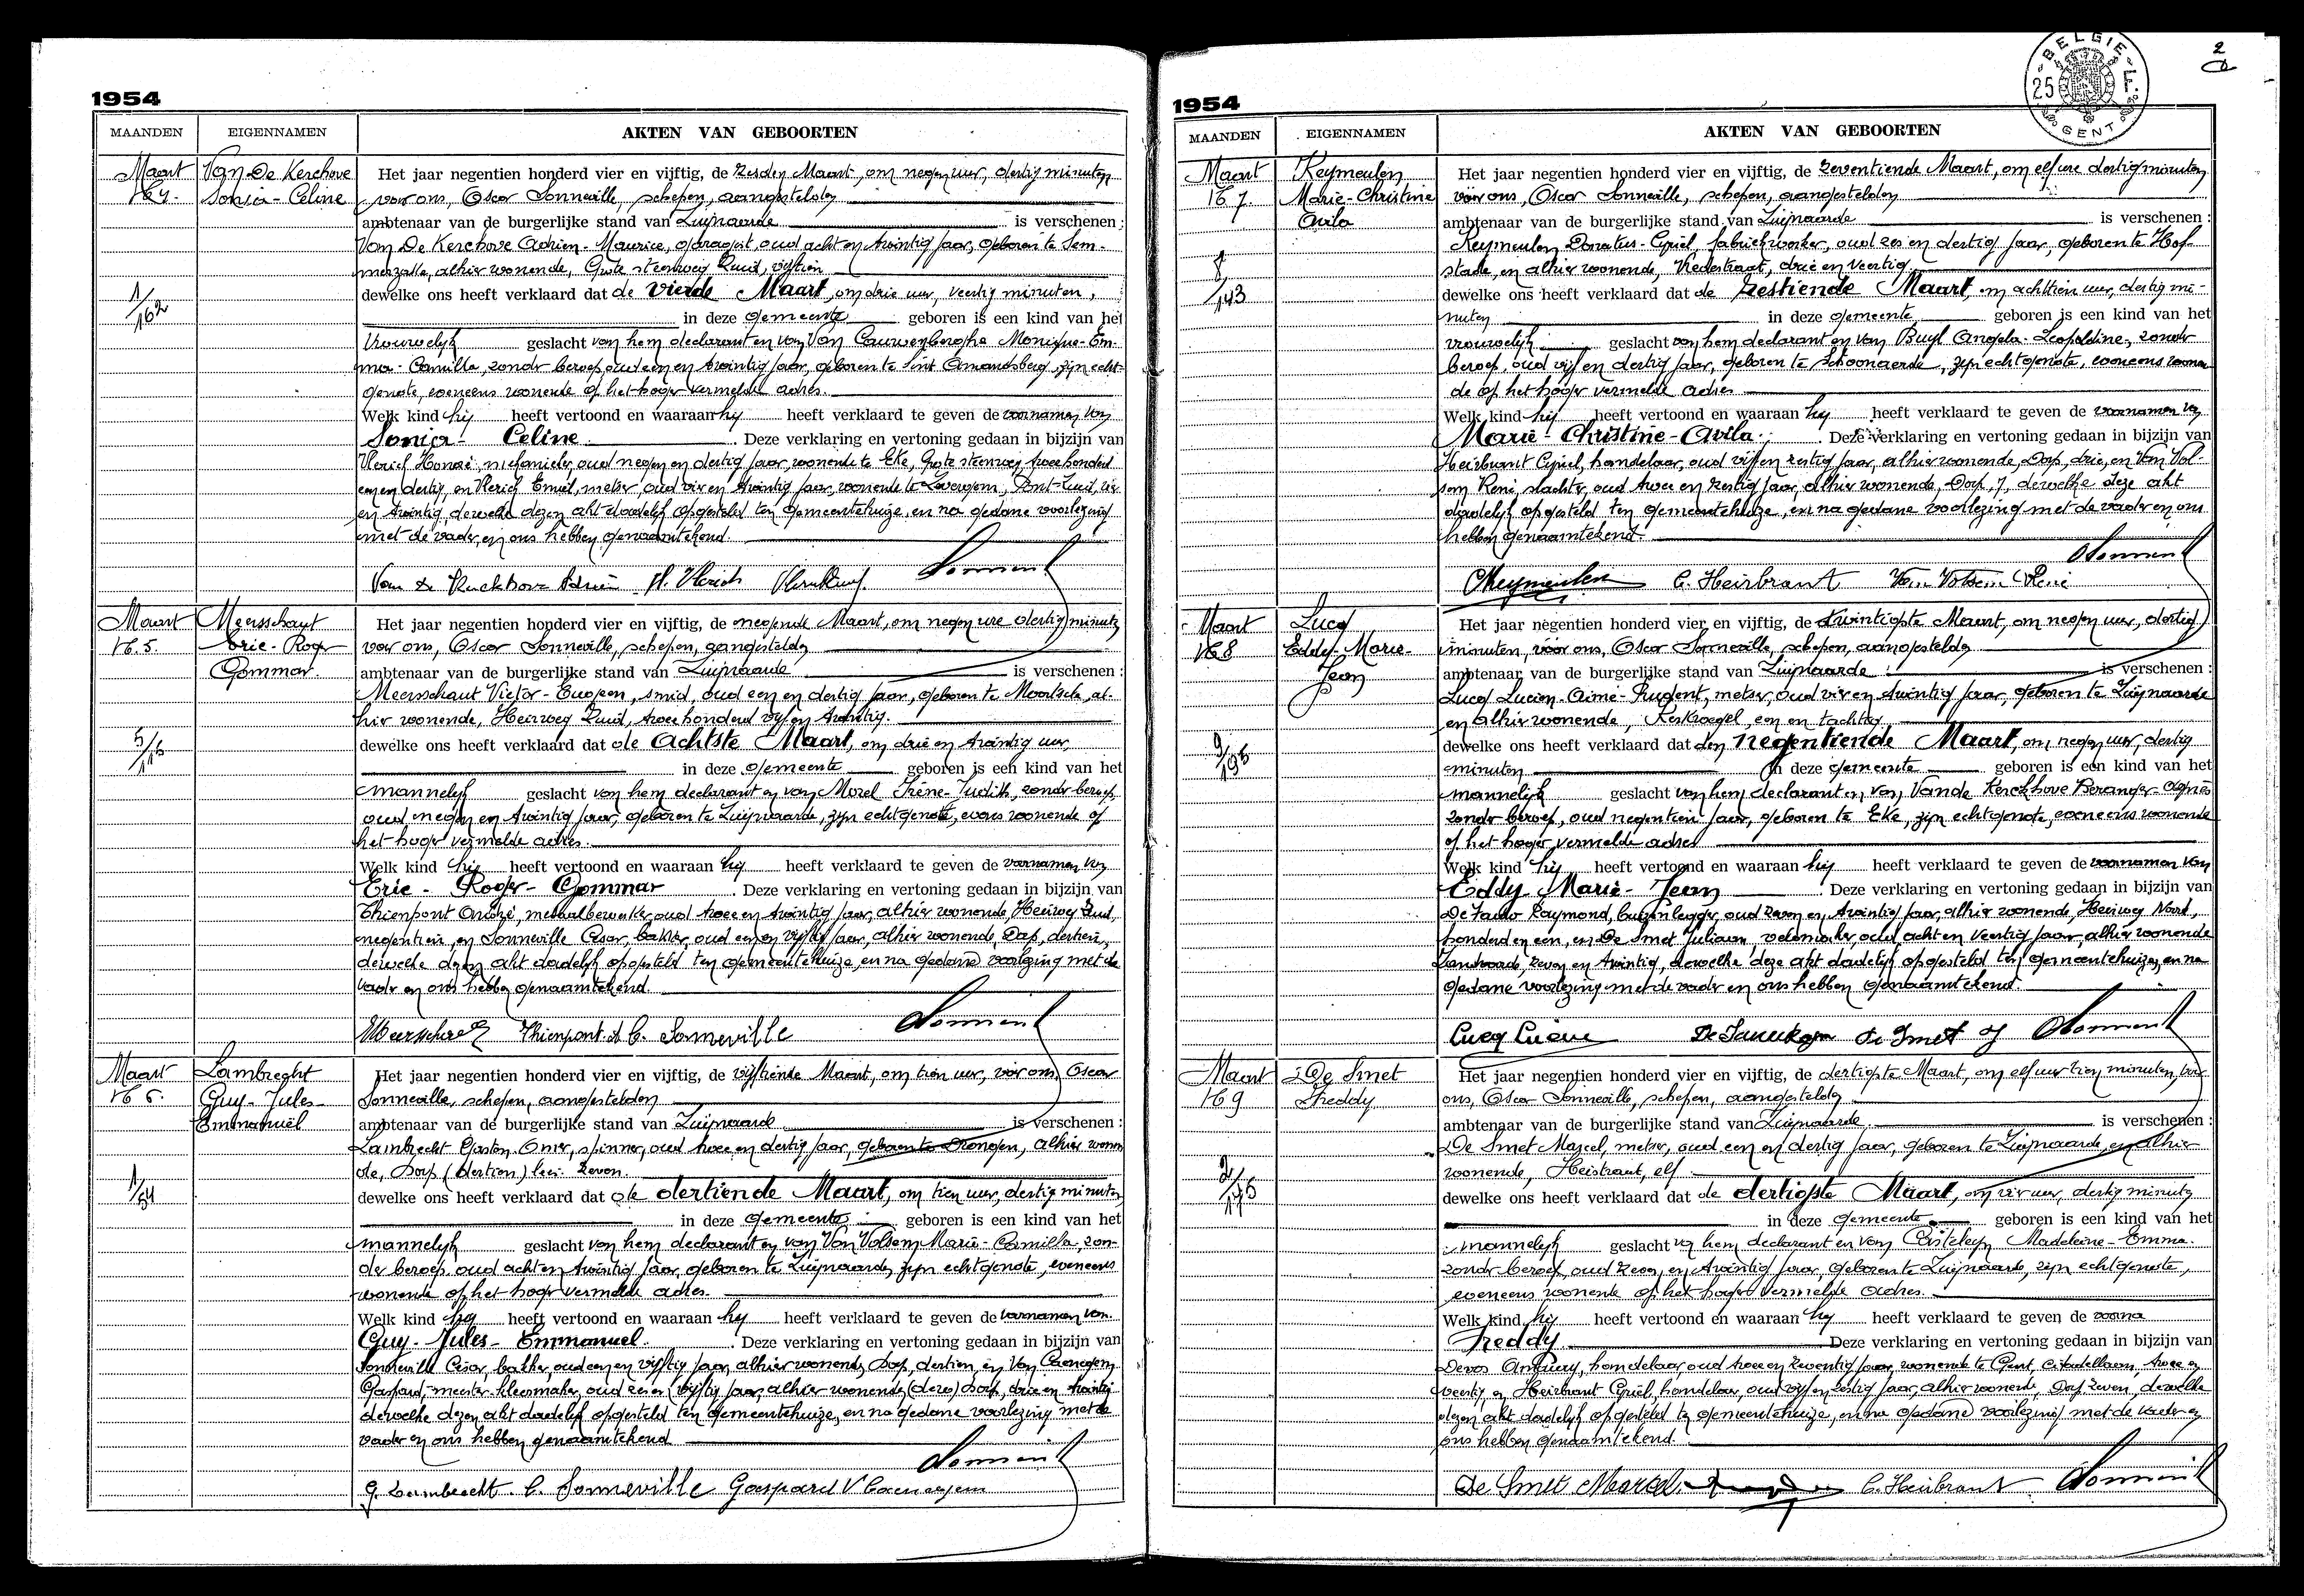 1954
MAANDEN
EIGENNAMEN
AKTEN VAN GEBOORTEN
Maart
N° 4.
Van De Kerchove
Sonia - Celine
1/162
Het jaar negentien honderd vier en vijftig, de zesden Maart, om negen uur, dertig minuten
voor ons, Oscar Sonneville, schepen, aangestelden
ambtenaar van de burgerlijke stand van Zwijnaarde is verschenen :
Van De Kerchove Adrien - Maurice, oud acht en twintig jaar, geboren te Sem-
merzake, alhier wonende, Grote steenweg Zuid, vijftien
dewelke ons heeft verklaard dat de vierde Maart, om drie uur, veertig minuten,
in deze gemeente geboren is een kind van het
vrouwelijk geslacht van hem declarant en van Van Cauwenberghe Monique - Em-
ma - Camilla, zonder beroep, oud een en twintig jaar, geboren te Sint Amandsberg, zijn echt-
genote, eveneens wonende op het hoger vermelde adres.
Welk kind hij heeft vertoond en waaraan hij heeft verklaard te geven de voornamen van
Sonia - Celine. Deze verklaring en vertoning gedaan in bijzijn van
Vlerick Honoré, mekanieker, oud negen en dertig jaar, wonende te Eke, Grote steenweg, twee honderd
een en dertig, en Vlerick Emiel, metser, oud vier en twintig jaar, wonende te Zevergem, Pont-Zuid, vier
en twintig, dewelke dezen akt dadelijk opgesteld ten gemeentehuize, en na gedane voorlezing
met de vader, en ons hebben genaamtekend.
Van De Kerckhove Adrien H. Vlerick
Maart
N° 5.
Meersschaut
Eric - Roger
Gommar.
5/116
Het jaar negentien honderd vier en vijftig, de negende Maart, om negen ure dertig minuten
voor ons, Oscar Sonneville, schepen, aangestelden
ambtenaar van de burgerlijke stand van Zwijnaarde is verschenen :
Meersschaut Victor - Eugeen, smid, oud een en dertig jaar, geboren te Moortsele, al-
hier wonende, Heirweg Zuid, twee honderd vijf en twintig.
dewelke ons heeft verklaard dat de achtste Maart, om drie en twintig uur,
in deze gemeente geboren is een kind van het
mannelijk geslacht van hem declarant en van Morel Irène - Judith, zonder beroep,
oud negen en twintig jaar, geboren te Zwijnaarde, zijn echtgenote, evens wonende op
het hoger vermelde adres.
Welk kind hij heeft vertoond en waaraan hij heeft verklaard te geven de voornamen van
Eric - Roger - Gommar. Deze verklaring en vertoning gedaan in bijzijn van
Thienpont André, metaalbewerker, oud twee en twintig jaar, alhier wonende, Heirweg Zuid,
negentien, en Sonneville Cesar, bakker, oud een en vijftig jaar, alhier wonende, Dorp, dertien,
dewelke dezen akt dadelijk opgesteld ten gemeentehuize, en na gedane voorlezing met de
vader en ons hebben genaamtekend.
Thienpont. A C. Sonneville
Maart
N° 6.
Lambreght
Guy - Jules -
Emmanuël
1/54
Het jaar negentien honderd vier en vijftig, de vijftiende Maart, om tien uur, voor ons, Oscar
Sonneville, schepen, aangestelden
ambtenaar van de burgerlijke stand van Zwijnaarde is verschenen :
Lambrecht Gaston - Omer, spinner, oud twee en dertig jaar, geboren te Drongen, alhier wonen
de, Dorp (dertien) lees: zeven.
dewelke ons heeft verklaard dat de dertiende Maart, om tien uur, dertig minuten
in deze gemeente geboren is een kind van het
mannelijk geslacht van hem declarant en van Van Volsem Marie - Camilla, zon-
der beroep, oud acht en twintig jaar, geboren te Zwijnaarde, zijn echtgenote, eveneens
wonende op het hoger vermelde adres.
Welk kind hij heeft vertoond en waaraan hij heeft verklaard te geven de voornamen van
Guy - Jules - Emmanuel. Deze verklaring en vertoning gedaan in bijzijn van
Sonneville Cesar, bakker, oud een en vijftig jaar, alhier wonende, Dorp, dertien, en Van Caenegem
Gaspard, meester - kleermaker, oud zes en vijftig jaar, alhier wonende, (dezes) Dorp, drie en twintig
dewelke dezen akt dadelijk opgesteld ten gemeentehuize, en na gedane voorlezing met de
vader en ons hebben genaamtekend
G. Lambrecht. C. Sonneville Gaspard V Caenegem
1954
MAANDEN
EIGENNAMEN
AKTEN VAN GEBOORTEN
BELGIE
25
GENT
2
Maart
N° 7.
Keymeulen
Marie - Christine
Avila
8/143
Het jaar negentien honderd vier en vijftig, de zeventiende Maart, om elf ure dertig minuten
vóór ons, Oscar Sonneville, schepen, aangestelden
ambtenaar van de burgerlijke stand van Zwijnaarde is verschenen :
Keymeulen Donatus - Cyriel, fabriekwerker, oud zes en dertig jaar, geboren te Hof-
stade, en alhier wonende, Vredestraat, drie en veertig
dewelke ons heeft verklaard dat de zestiende Maart, om achttien uur, dertig mi-
nuten in deze gemeente geboren is een kind van het
vrouwelijk geslacht van hem declarant en van Buyl Angela - Leopoldine, zonder
beroep, oud vijf en dertig jaar, geboren te Schoonaarde, zijn echtgenote, eveneens wonen
de op het hoger vermelde adres
Welk kind hij heeft vertoond en waaraan hij heeft verklaard te geven de voornamen van
Marie - Christine - Avila. Deze verklaring en vertoning gedaan in bijzijn van
Heirbrant Cyriel, handelaar, oud vijf en zestig jaar, alhier wonende, Dorp, drie, en Van Vol-
sem René, slachter, oud twee en zestig jaar, alhier wonende, Dorp, 7, dewelke deze akt
dadelijk opgesteld ten gemeentehuize, en na gedane voorlezing met de vader en ons
hebben genaamtekend.
Keymeulen C. Heirbrant Van Volsem René
Maart
N° 8
Lucq
Eddy - Marie -
Jean
9/195
Het jaar negentien honderd vier en vijftig, de twintigste Maart, om negen uur, dertig
minuten, vóór ons, Oscar Sonneville, schepen, aangestelden
ambtenaar van de burgerlijke stand van Zwijnaarde is verschenen :
Lucq Lucien - Aimé - Prudent, metser, oud vier en twintig jaar, geboren te Zwijnaarde
en alhier wonende, Kerkwegel, een en tachtig
dewelke ons heeft verklaard dat den negentiende Maart, om negen uur, dertig
minuten in deze gemeente geboren is een kind van het
mannelijk geslacht van hem declarant en van Vande Kerckhove Beranger - Agnès
zonder beroep, oud negentien jaar, geboren te Eke, zijn echtgenote, eveneens wonende
op het hoger vermelde adres
Welk kind hij heeft vertoond en waaraan hij heeft verklaard te geven de voornamen van
Eddy - Marie - Jean Deze verklaring en vertoning gedaan in bijzijn van
Raymond, buizenlegger, oud zeven en twintig jaar, alhier wonende, Heirweg Noord,
honderd en een, en De Smet Juliaan velomaker, oud acht en veertig jaar, alhier wonende
zeven en twintig, dewelke deze akt dadelijk opgesteld ten gemeentehuize, en na
gedane voorlezing met de vader en ons hebben genaamtekend.
Lucq Lucien De Smet J
Maart
N° 9
De Smet
Freddy
2/175
Het jaar negentien honderd vier en vijftig, de dertigste Maart, om elf uur tien minuten, vóór
ons, Oscar Sonneville, schepen, aangestelden
ambtenaar van de burgerlijke stand van Zwijnaarde is verschenen :
De Smet Marcel, metser, oud een en dertig jaar, geboren te Zwijnaarde, en alhier
wonende, Heistraat, elf
dewelke ons heeft verklaard dat de dertigste Maart, om vier uur, dertig minuten
in deze gemeente geboren is een kind van het
mannelijk geslacht van hem declarant en van Casteleyn Madeleine - Emma.
zonder beroep, oud zeven en twintig jaar, geboren te Zwijnaarde, zijn echtgenote,
eveneens wonende op het hoger vermelde adres.
Welk kind hij heeft vertoond en waaraan hij heeft verklaard te geven de voorna
Freddy Deze verklaring en vertoning gedaan in bijzijn van
Devos handelaar, oud twee en zeventig jaar, wonende te Gent, Citadellaan, twee en
veertig, en Heirbrant Cyriel, handelaar, oud vijf en zestig jaar, alhier wonende, Dorp zeven, dewelke
dezen akt dadelijk opgesteld ten gemeentehuize, en na gedane voorlezing met de vader en
ons hebben genaamtekend.
De Smet Marcel. C. Heirbrant